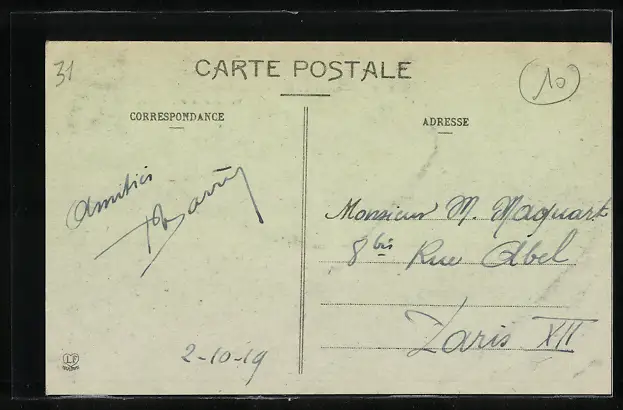 31
CARTE POSTALE
10
CORRESPONDANCE
ADRESSE
Amitiés
2-10-19
Monsieur M. Maquart
8 bis Rue Abel
Paris XII